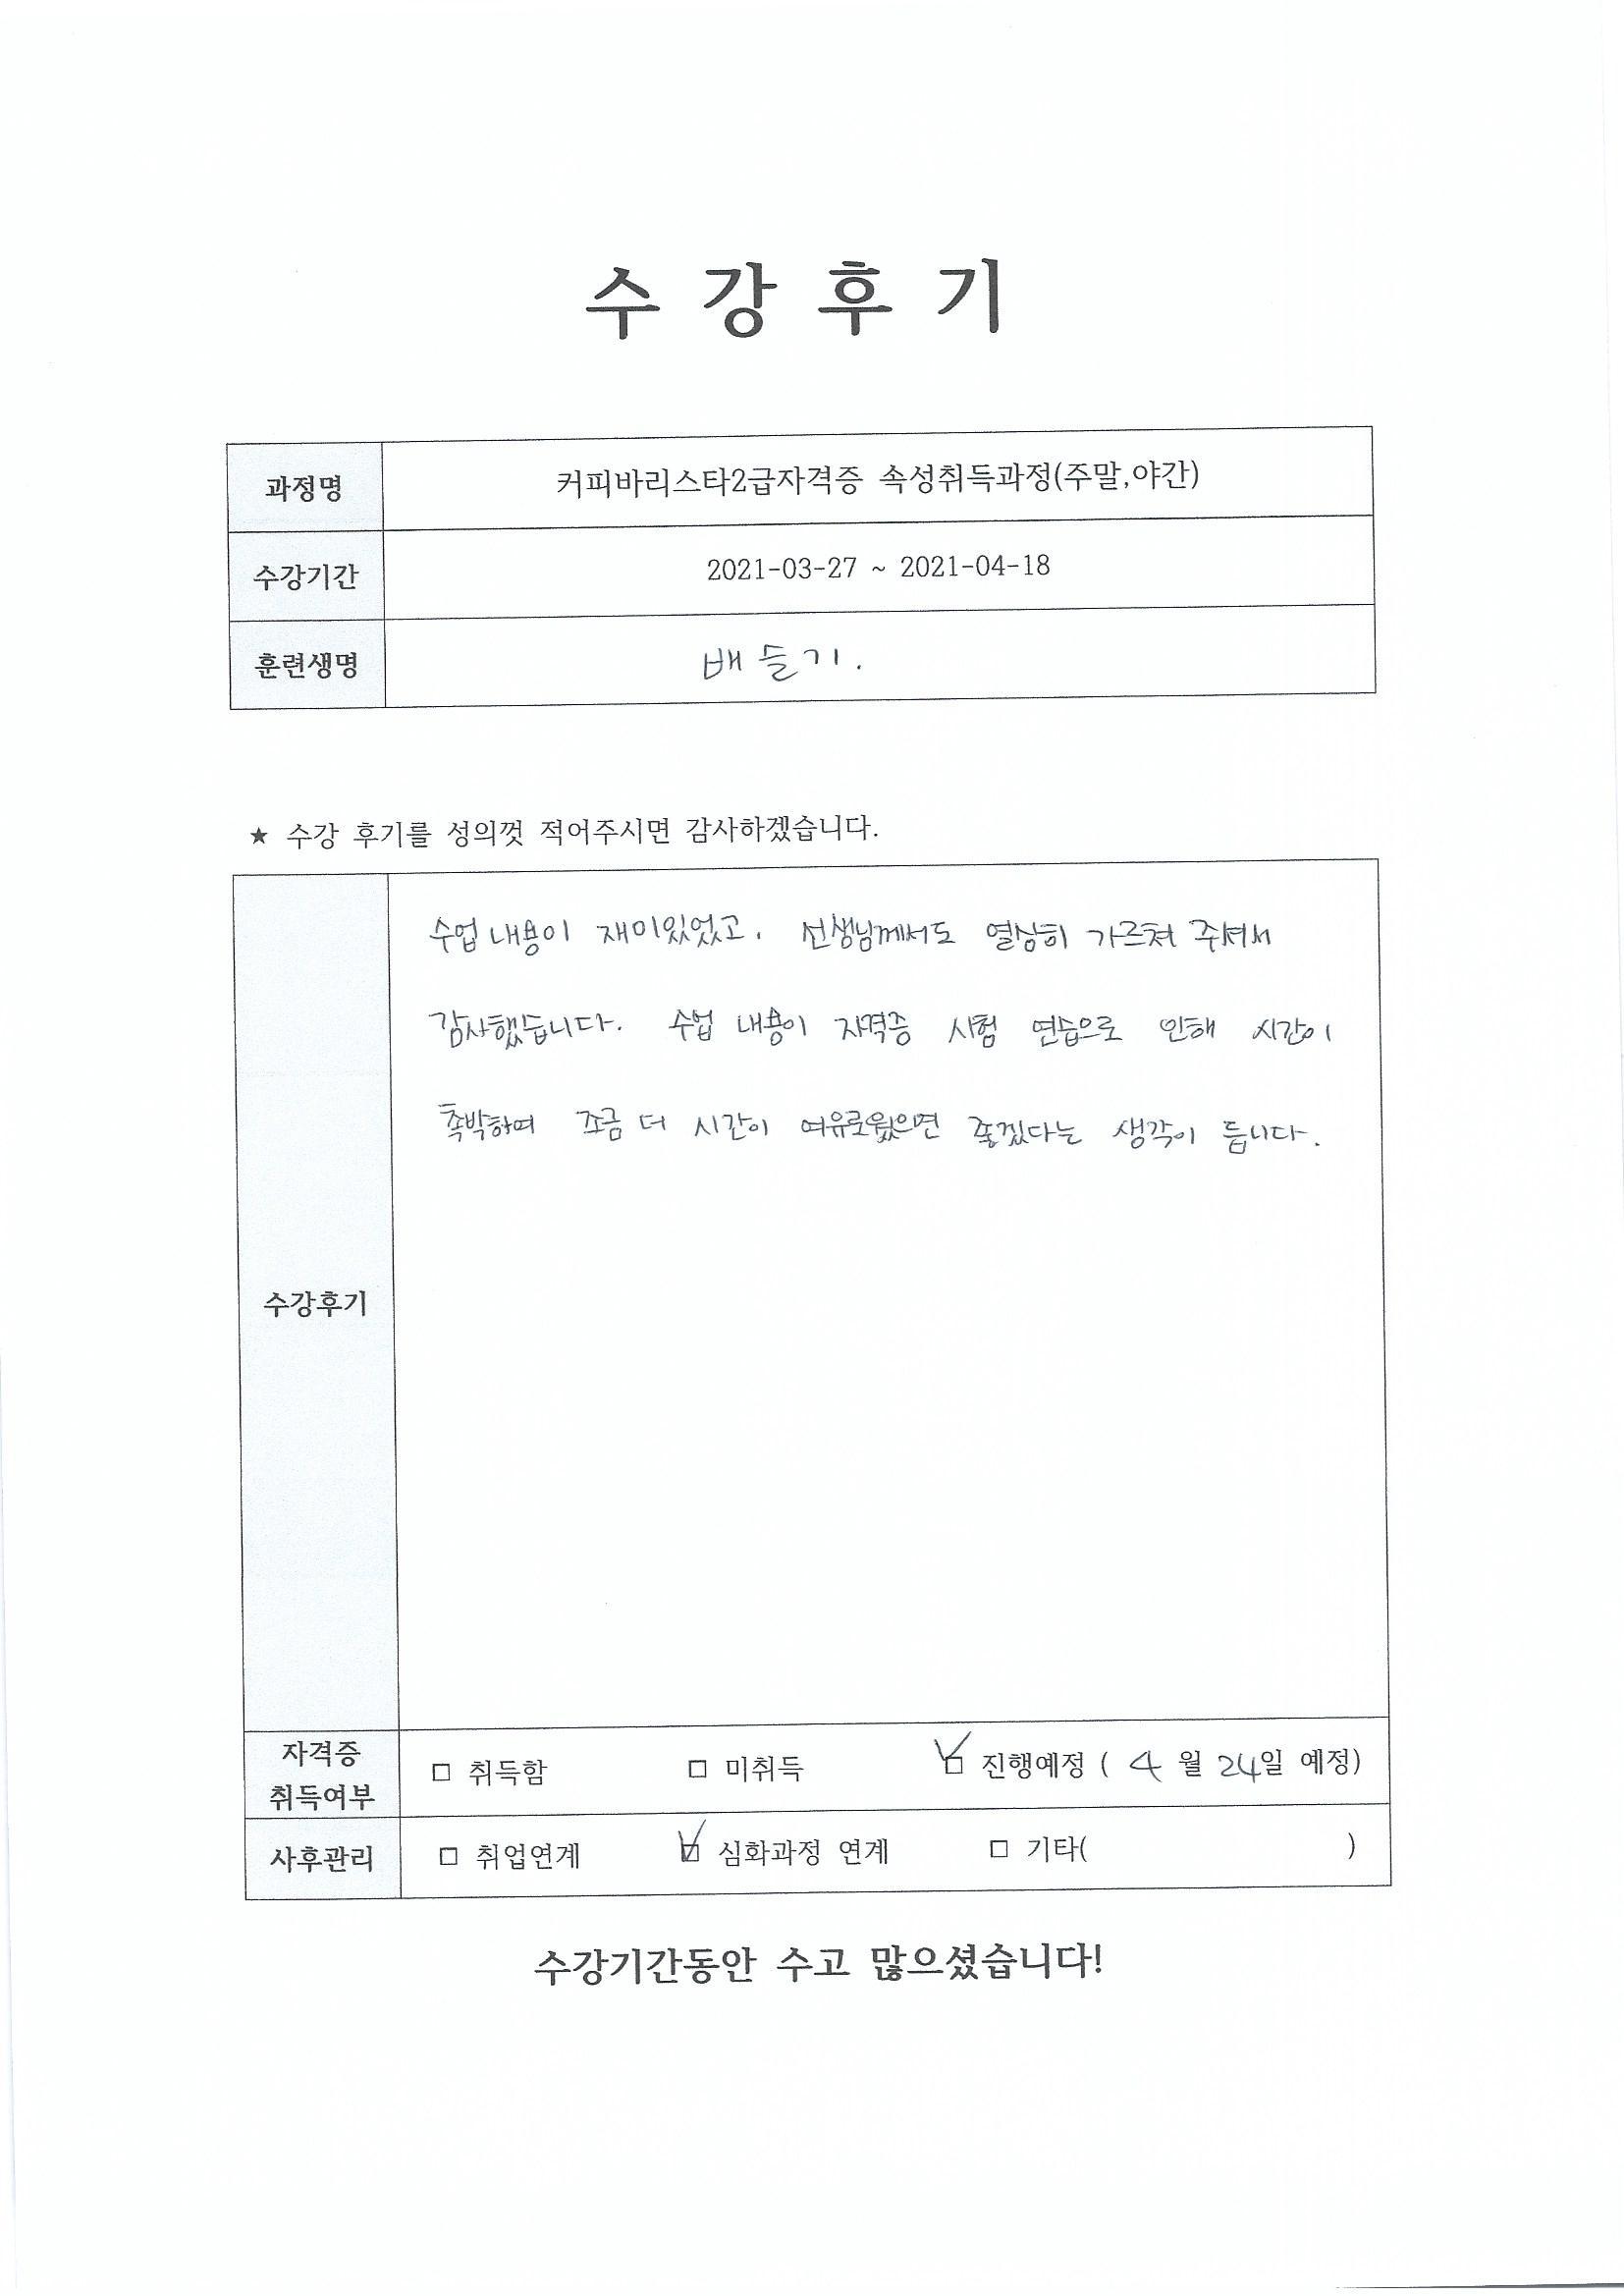 수 강 후 기
과정명 커피바리스타2급자격증 속성취득과정(주말,야간)
수강기간 2021-03-27 ~ 2021-04-18
훈련생명 배슬기.
★ 수강 후기를 성의껏 적어주시면 감사하겠습니다.
수업 내용이 재미있었고, 선생님께서도 열심히 가르쳐 주셔서
감사했습니다. 수업 내용이 자격증 시험 연습으로 인해 시간이
촉박하여 조금 더 시간이 여유로웠으면 좋겠다는 생각이 듭니다.
수강후기
자격증
취득여부
□ 취득함 □ 미취득 ☑ 진행예정 ( 4 월 24일 예정)
사후관리 □ 취업연계 ☑ 심화과정 연계 □ 기타( )
수강기간동안 수고 많으셨습니다!